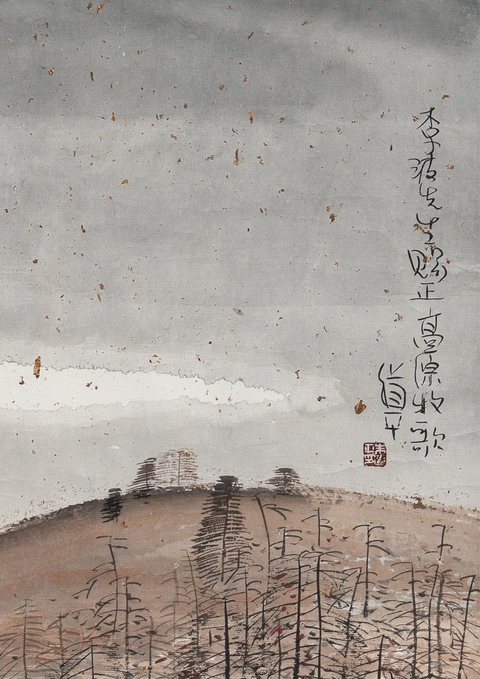 李波先生賜正高原牧歌
道平